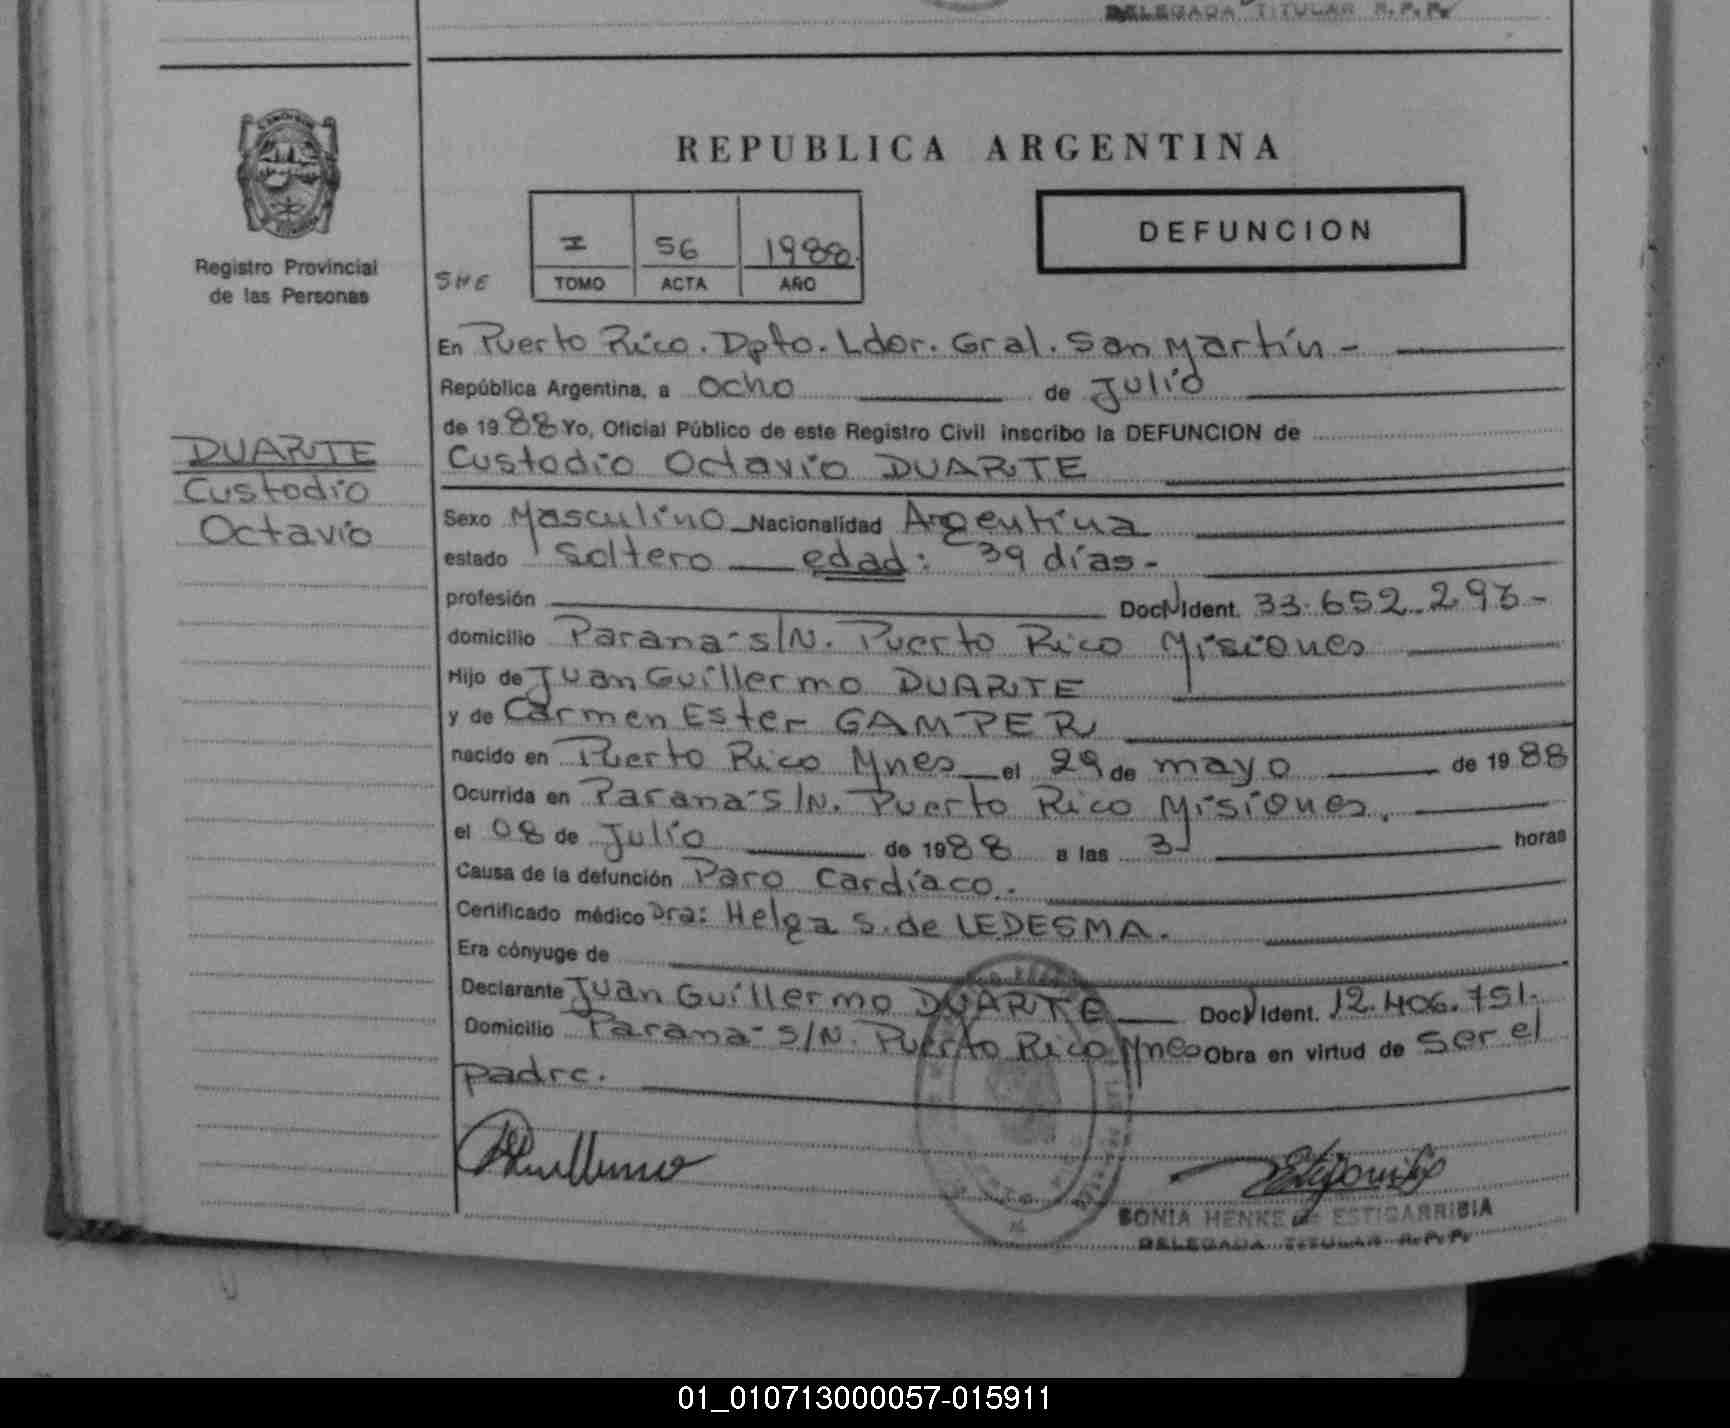 DELEGADA TITULAR R.P.P.
REPUBLICA ARGENTINA
Registro Provincial
de las Personas
DUARTE
Custodio
Octavio
SHE
I 56 1988
TOMO ACTA AÑO
DEFUNCION
En Puerto Rico. Dpto. Ldor. Gral. San Martín -
República Argentina, a ocho de Julio
de 1988 Yo, Oficial Público de este Registro Civil inscribo la DEFUNCION de
Custodio Octavio DUARTE
Sexo Masculino Nacionalidad Argentina
estado Soltero edad: 39 días-
profesión Doc N Ident. 33.652.293-
domicilio Parana s/N. Puerto Rico Misiones
Hijo de Juan Guillermo DUARTE
y de Carmen Ester GAMPER
nacido en Puerto Rico Mnes el 29 de mayo de 1988
Ocurrida en Parana s/N. Puerto Rico Misiones.
el 08 de Julio de 1988 a las 3 horas
Causa de la defunción Paro Cardíaco.
Certificado médico Dra: Helga S. de LEDESMA.
Era cónyuge de
Declarante Juan Guillermo DUARTE Doc N Ident. 12.406.751.
Domicilio Parana s/N. Puerto Rico Mnes Obra en virtud de ser el
padre.
SONIA HENKE de ESTIGARRIBIA
DELEGADA TITULAR R.P.P.
01_010713000057-015911